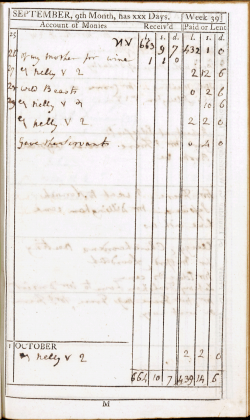 SEPTEMBER, 9th Month, has xxx Days. Week 39
Account of Monies Receiv'd Paid or Lent
l. s. d. l. s. d.
663 9 7 432 1 0
26 my mother for wine 1 1 0
Nelly V 2 2 12 6
Wild Beasts 0 2 6
Nelly V 10 6
Nelly V 2 2 2 0
Gave the Servant 0 4 0
1 OCTOBER
Nelly V 2 2 2 0
664 10 7 439 14 6
M